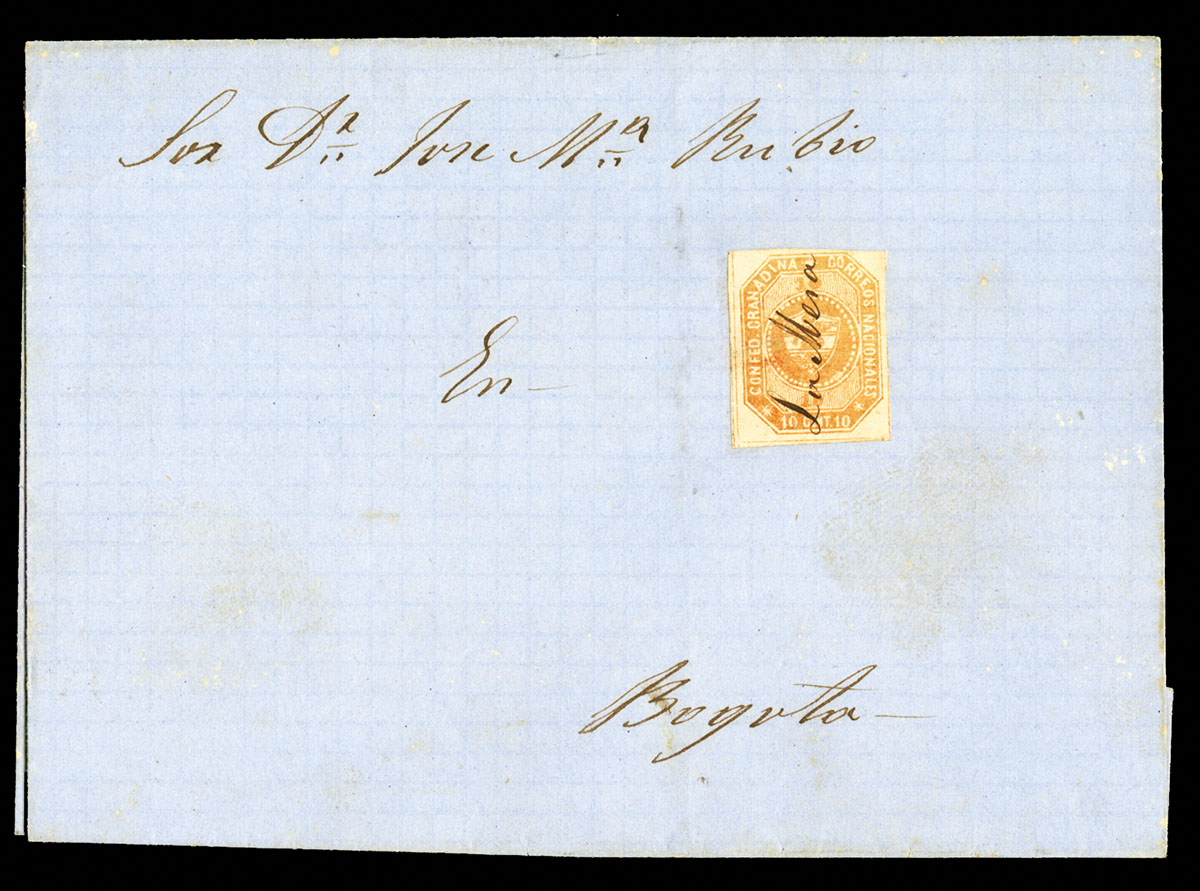 Sor Dn Jose Ma Rubio
CONFED. GRANADINA CORREOS NACIONALES
La Mesa
10 CENT. 10
En—
Bogota—